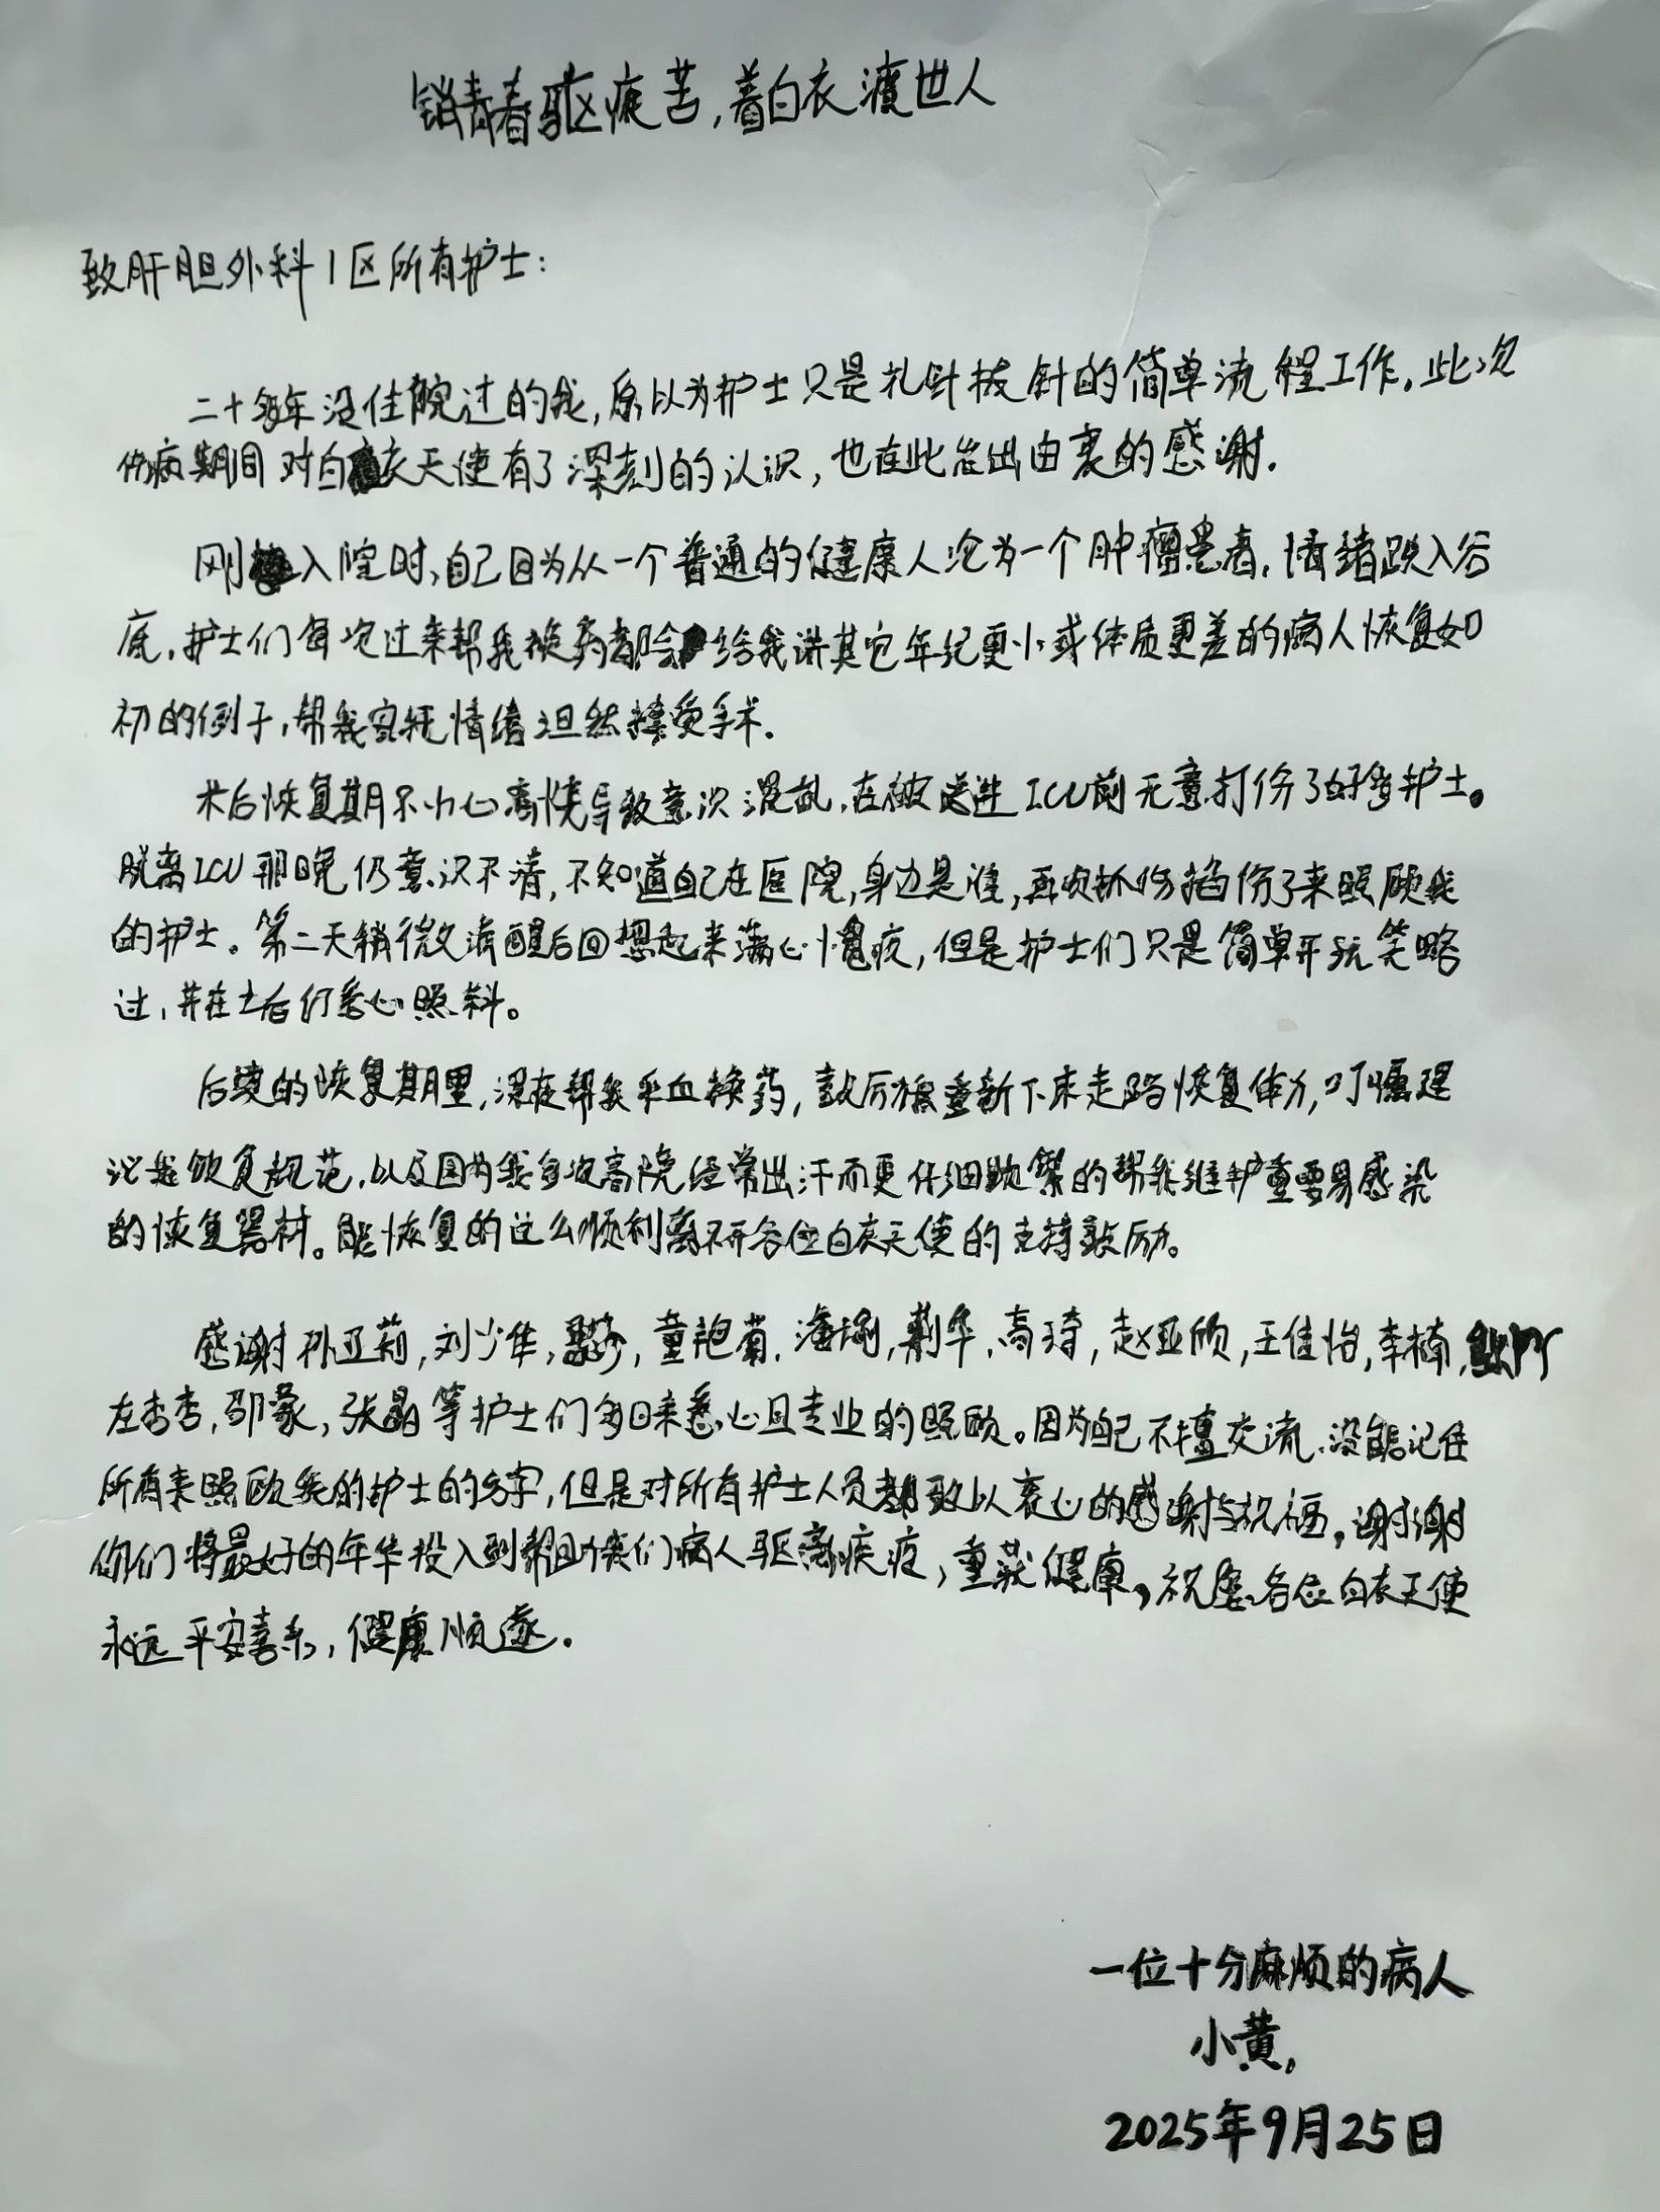 销青春驱疾苦，着白衣渡世人
致肝胆外科1区所有护士：
二十多年没住院过的我，原以为护士只是扎针拔针的简单流程工作。此次
伤病期间对白衣天使有了深刻的认识，也在此发出由衷的感谢.
刚入院时，自己因为从一个普通的健康人沦为一个肿瘤患者，情绪跌入谷
底，护士们每次过来帮我换药都会给我讲其它年纪更小或体质更差的病人恢复如
初的例子，帮我安抚情绪坦然接受手术.
术后恢复期不小心高烧导致意识混乱，在被送进ICU前无意打伤了好多护士。
脱离ICU那晚仍意识不清，不知道自己在医院，身边是谁，再次抓伤掐伤了来照顾我
的护士。第二天稍微清醒后回想起来满心愧疚，但是护士们只是简单开玩笑略
过，并在之后仍悉心照料。
后续的恢复期里，深夜帮我采血换药，鼓励我重新下床走路恢复体力，叮嘱建
议我饮食规范，以及因为我多次高烧经常出汗而更仔细频繁的帮我维护重要易感染
的恢复器材。能恢复的这么顺利离不开各位白衣天使的支持鼓励。
感谢孙亚莉，刘少华，童艳菊，荆华，高琦，赵亚欣，王佳怡，李楠，
左杏杏，邵蒙，张晶等护士们多日来悉心且专业的照顾。因为自己不擅交流，没能记住
所有来照顾我的护士的名字，但是对所有护士人员都致以衷心的感谢与祝福，谢谢
你们将最好的年华投入到帮助我们病人驱离疾疫，重获健康，祝愿各位白衣天使
永远平安喜乐，健康顺遂.
一位十分麻烦的病人
小黄.
2025年9月25日